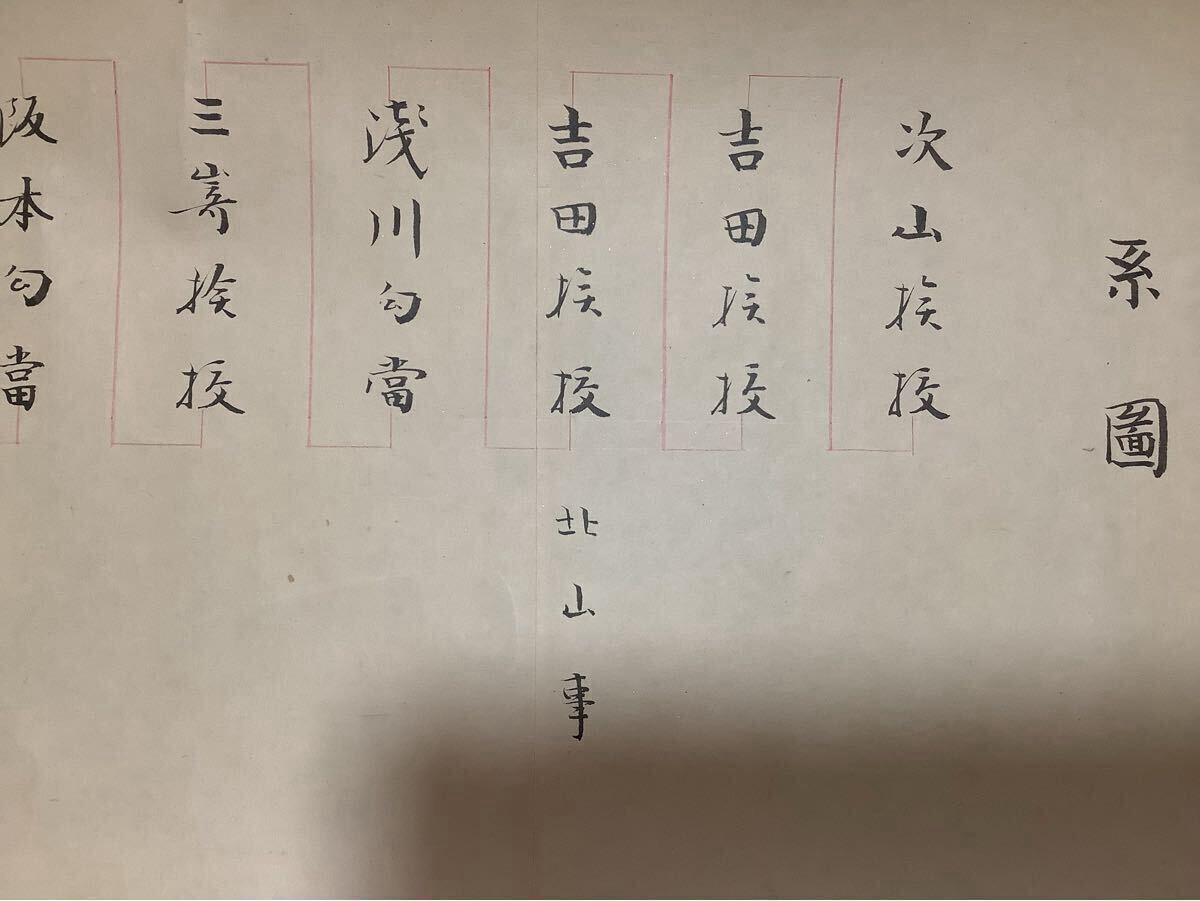 系圖
次山挨挍
吉田挨挍
吉田挨挍 北山事
淺川勾當
三嵜挨挍
阪本勾當